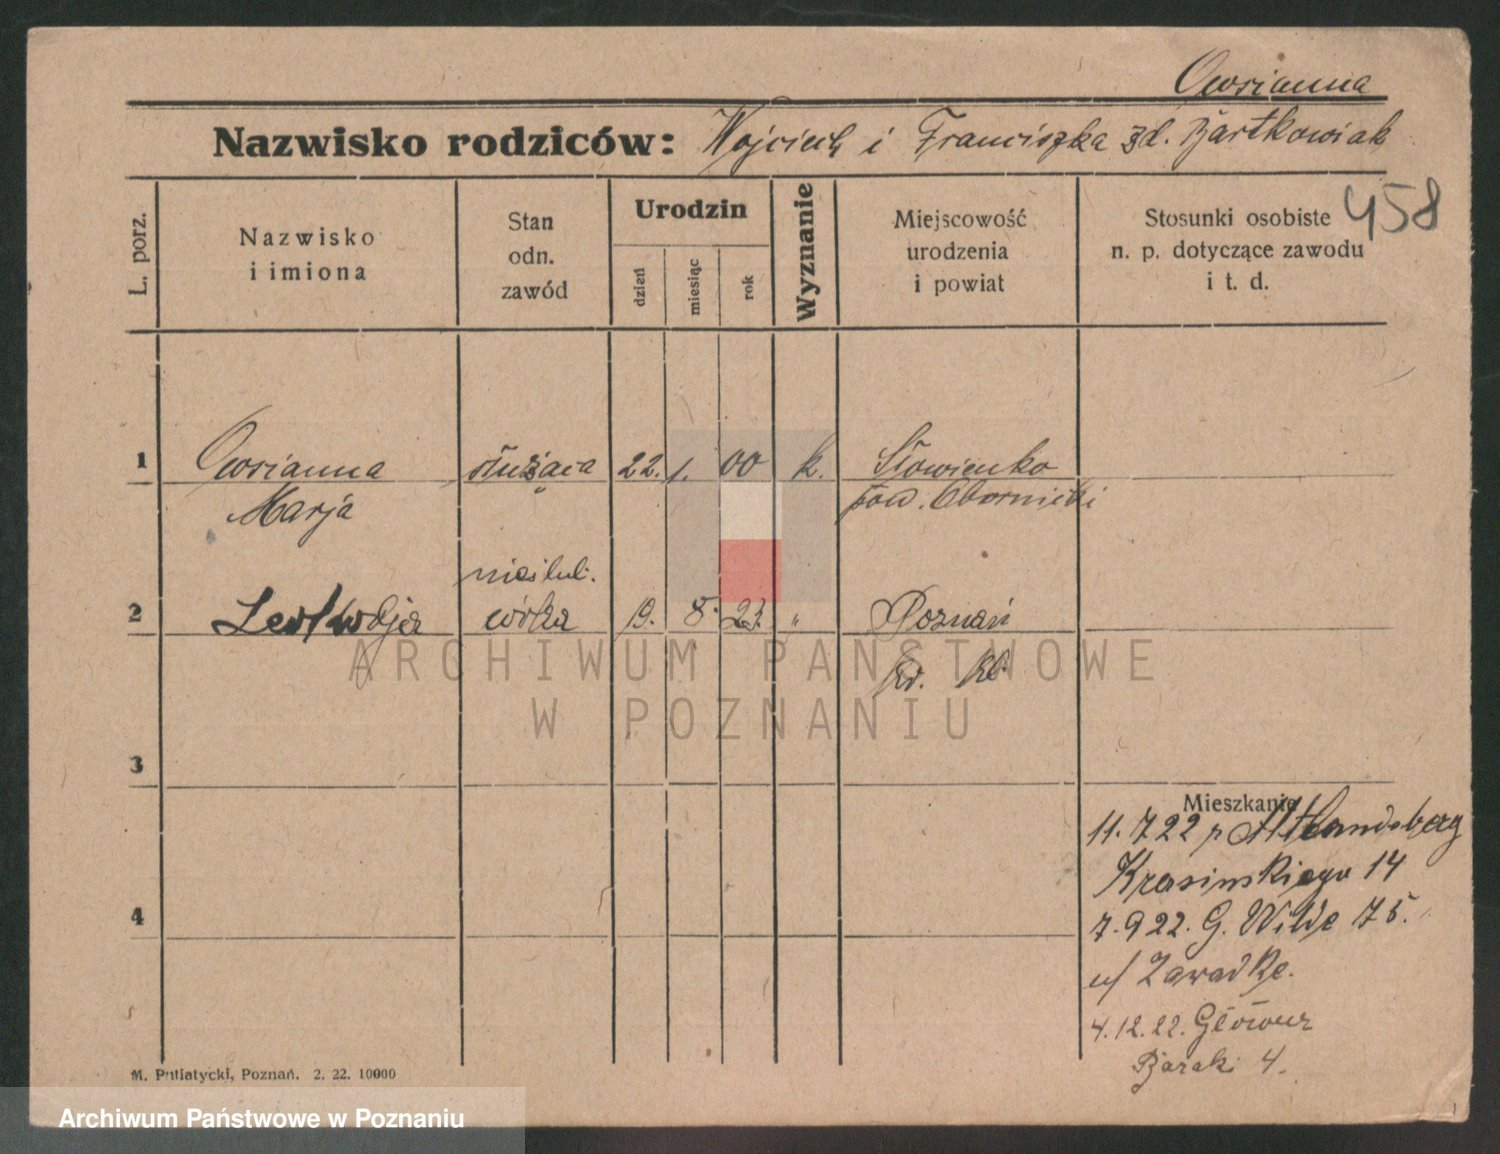 Owsianna
Nazwisko rodziców: Wojciech i Franciszka zd. Bartkowiak
458
L. porz.
Nazwisko
i imiona
Stan
odn.
zawód
Urodzin
dzień
miesiąc
rok
Wyznanie
Miejscowość
urodzenia
i powiat
Stosunki osobiste
n. p. dotyczące zawodu
i t. d.
1 Owsianna służąca 22. 1. 00 k. Słowienko
Marja pow. Obornicki
2 19. 8. 23. " Poznań
ARCHIWUM PAŃSTWOWE
W POZNANIU
3
Mieszkanie
11.7.22 Landsberg
Krasinskiego 14
4
7.9.22. G. Wilde 75.
u/ Zawadke.
4.12.22. Główna
Baraki 4.
M. Putiatycki, Poznań. 2. 22. 10000
Archiwum Państwowe w Poznaniu